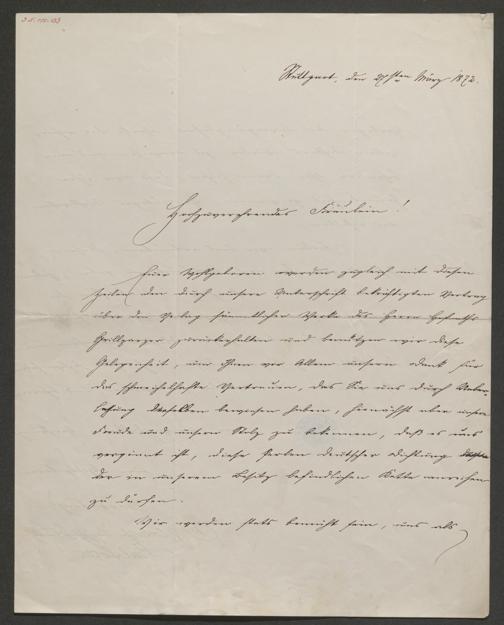 Stuttgart, den 27sten März 1872.
Hochzuverehrendes Fräulein!
Euer Wohlgeboren werden zugleich mit diesen
Zeilen den durch unsere Unterschrift bekräftigten Vertrag
über den Verlag sämmtlicher Werke des Herrn Hofraths
Grillparzer zurückerhalten und benutzen wir diese
Gelegenheit, um Ihnen vor Allem unsern Dank für
das schmeichelhafte Vertrauen, das Sie uns durch Ueber-
lassung derselben bewiesen haben, hiernächst aber unsere
Freude und unsern Stolz zu bekennen, daß es uns
vergönnt ist, diese Perlen deutscher Dichtung
der in unserem Besitz befindlichen Kette anreihen
zu dürfen.
Wir werden stets bemüht sein, uns als